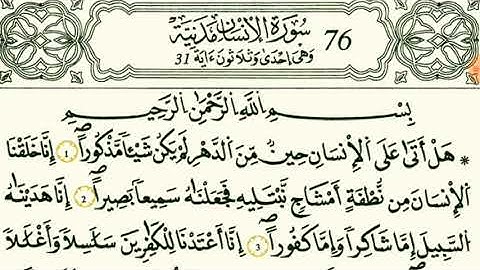 سُورَةُ الْإِنسَانِ مَدَنِيَّةٌ 76
وَهِيَ إِحْدَىٰ وَثَلَاثُونَ ءَايَةً 31
بِسْمِ اللَّهِ الرَّحْمَٰنِ الرَّحِيمِ
* هَلْ أَتَىٰ عَلَى الْإِنسَانِ حِينٌ مِّنَ الدَّهْرِ لَمْ يَكُن شَيْـًٔا مَّذْكُورًا 1 إِنَّا خَلَقْنَا
الْإِنسَانَ مِن نُّطْفَةٍ أَمْشَاجٍ نَّبْتَلِيهِ فَجَعَلْنَاهُ سَمِيعًا بَصِيرًا 2 إِنَّا هَدَيْنَاهُ
السَّبِيلَ إِمَّا شَاكِرًا وَإِمَّا كَفُورًا 3 إِنَّا أَعْتَدْنَا لِلْكَافِرِينَ سَلَٰسِلًا وَأَغْلَٰلًا